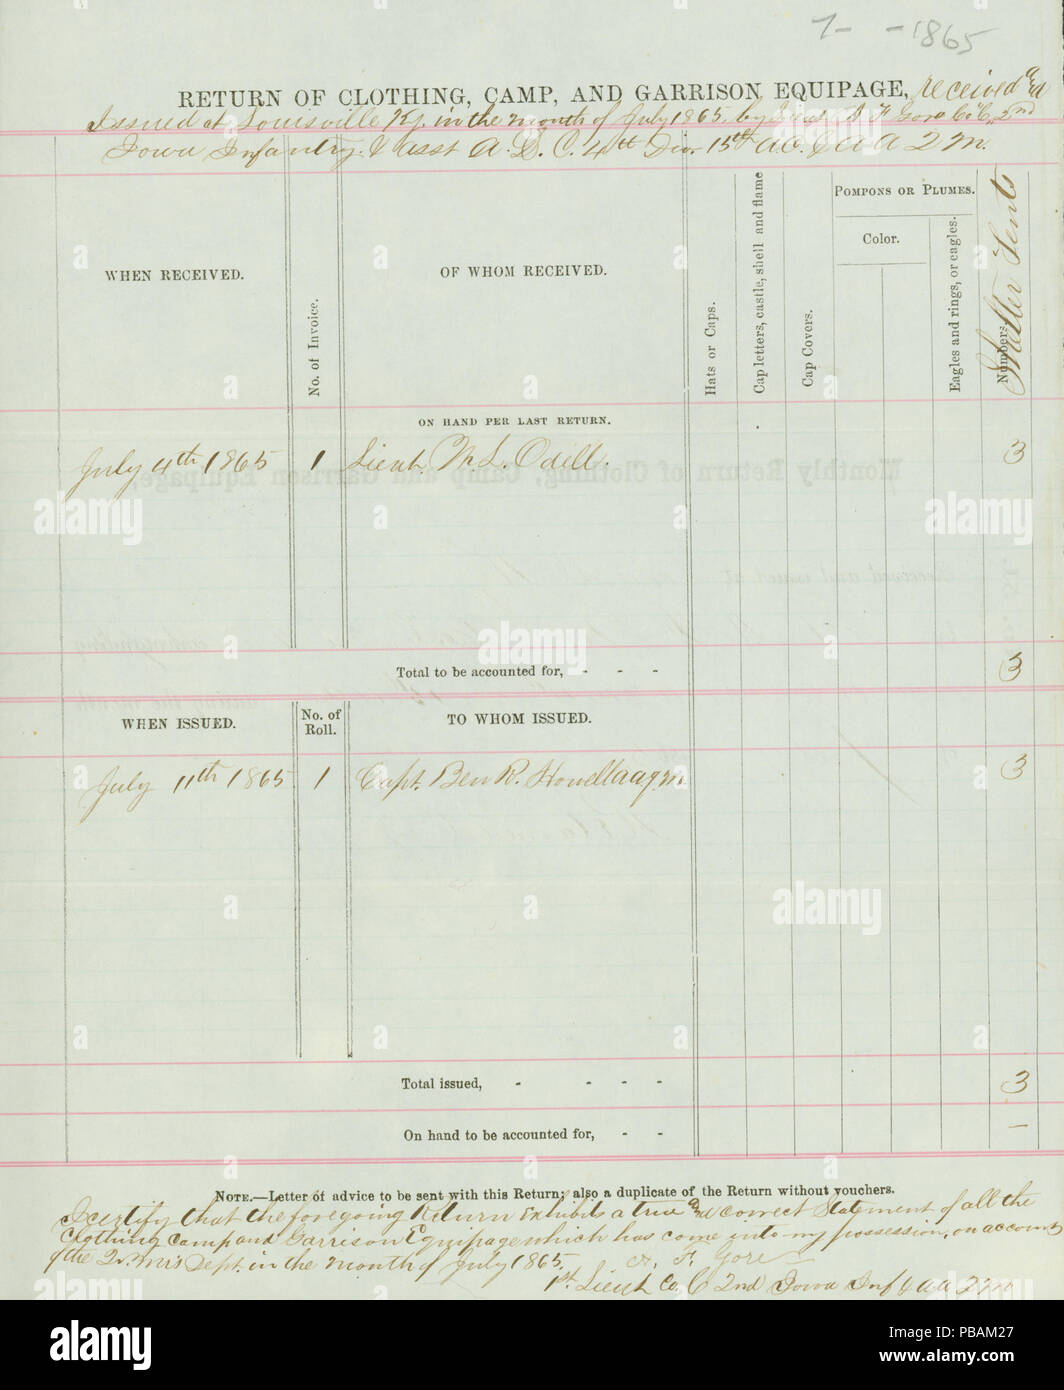 7- - -1865
RETURN OF CLOTHING, CAMP, AND GARRISON EQUIPAGE, received and
Issued at Louisville Ky. in the month of July 1865 by Lieut A. F. Gore Co "C" 2nd
Iowa Infantry & asst A. D. C. 4th Div. 15th A.C. & a a 2 M.
WHEN RECEIVED.
No. of Invoice.
OF WHOM RECEIVED.
Hats or Caps.
Cap letters, castle, shell and flame
Cap Covers.
POMPONS OR PLUMES.
Color.
Eagles and rings, or eagles.
Numbers.
Shelter Tents
ON HAND PER LAST RETURN.
July 4th 1865 1 Lieut. M. L. Odell. 3
Monthly Return of Clothing, Camp and Garrison Equipage,
Received and issued at
Total to be accounted for, - - - 3
during the month
WHEN ISSUED.
No. of Roll.
TO WHOM ISSUED.
July 11th 1865 1 Capt. Ben R. Howell a a q m 3
Total issued, - - - - 3
On hand to be accounted for, - - —
NOTE.—Letter of advice to be sent with this Return; also a duplicate of the Return without vouchers.
I certify that the foregoing Return exhibits a true and correct Statement of all the
Clothing Camp and Garrison Equipage which has come into my possession, on account
of the Qr. Mr's Dept. in the month of July 1865.
A. F. Gore
1st. Lieut Co. C 2nd Iowa Inf & a a 2 m
alamy
alamy
Image ID: PBAM27
www.alamy.com